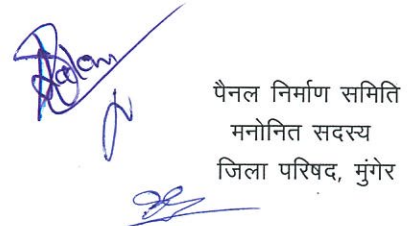 पैनल निर्माण समिति
मनोनित सदस्य
जिला परिषद, मुंगेर